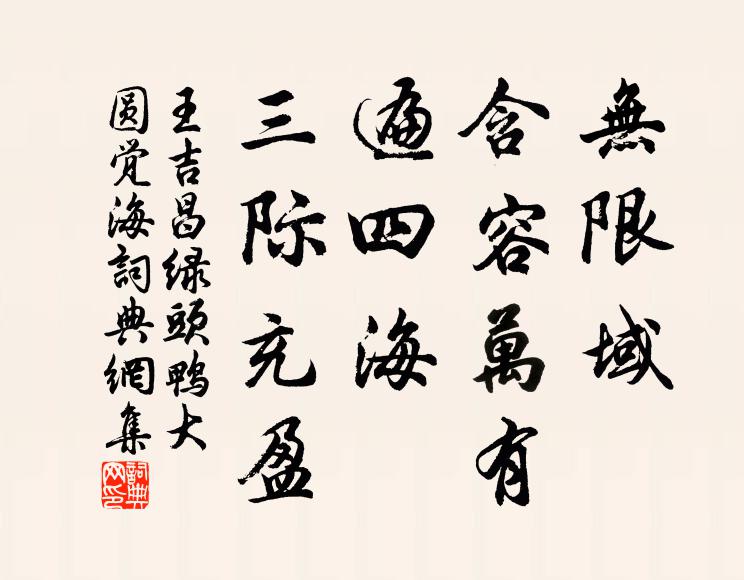 無限域
含容萬有
遍四海
三际充盈
王吉昌绿頭鸭大
圆觉海詞典網集
詞典网印